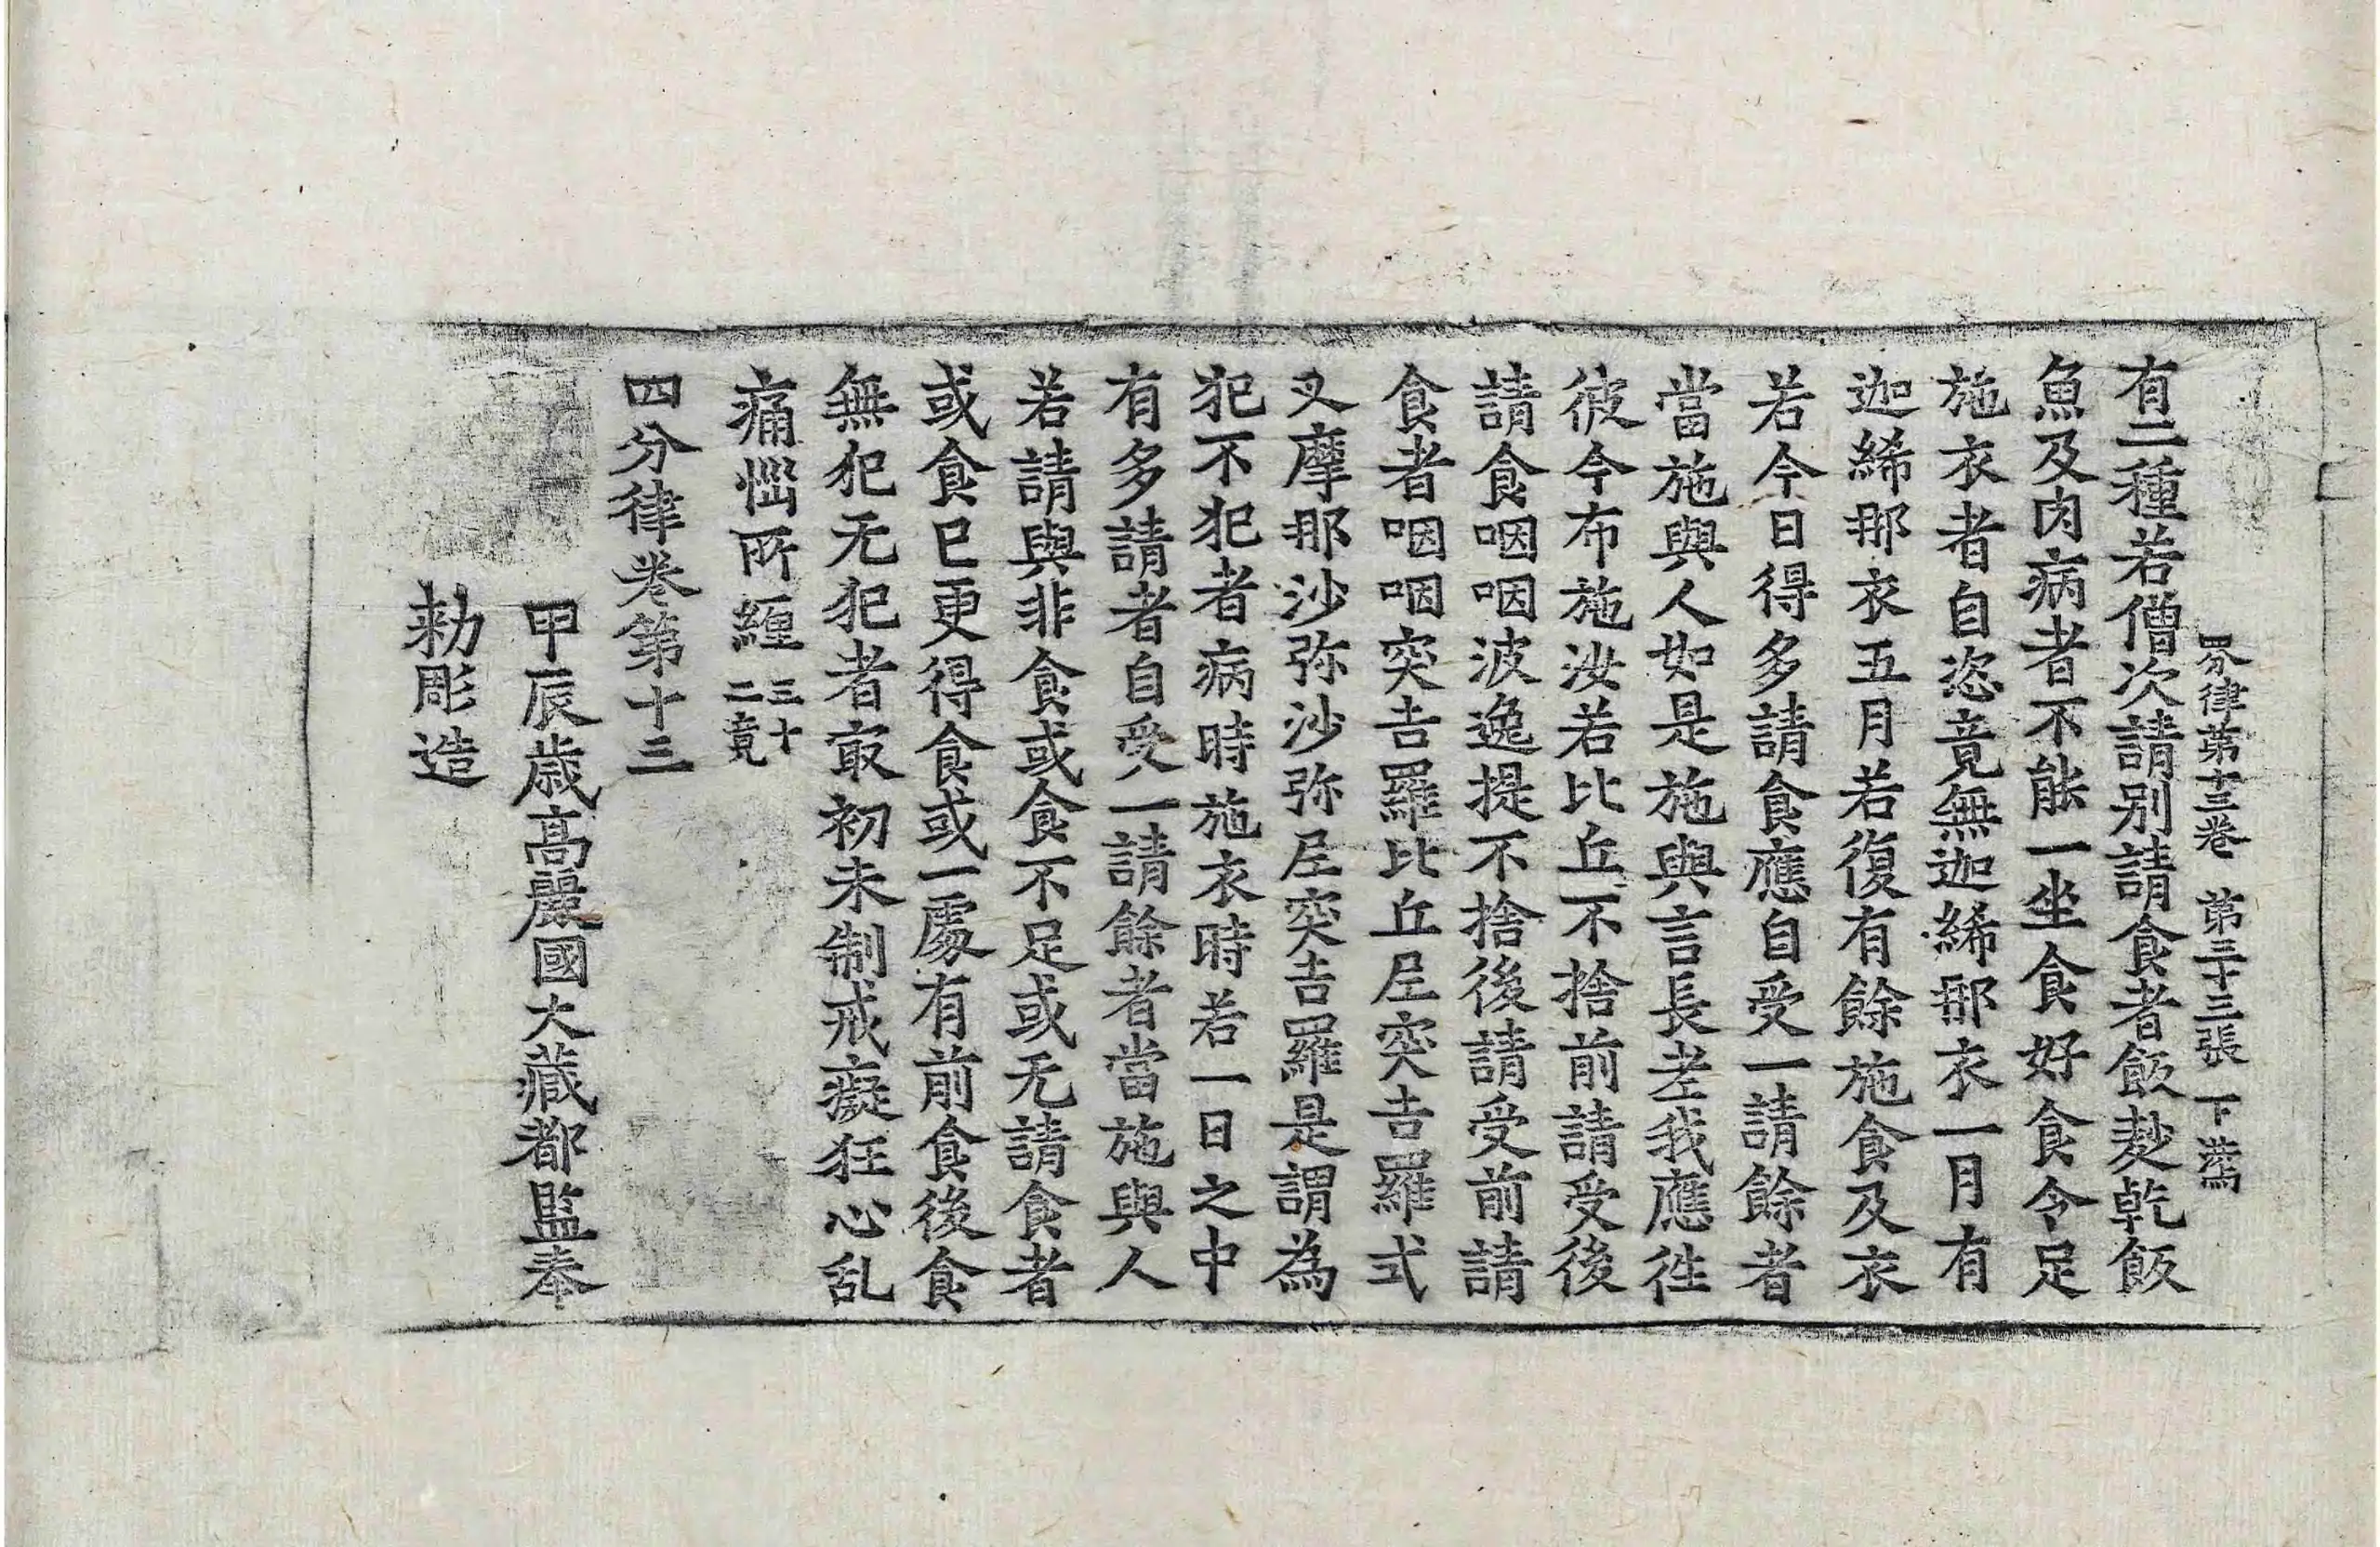 四分律第十三卷 第三十三張 下
有二種若僧次請別請食者飯麨乾飯
魚及肉病者不能一坐食好食令足
施衣者自恣竟無迦絺那衣一月有
迦絺那衣五月若復有餘施食及衣
若今日得多請食應自受一請餘者
當施與人如是施與言長老我應往
彼今布施汝若比丘不捨前請受後
請食咽咽波逸提不捨後請受前請
食者咽咽突吉羅比丘尼突吉羅式
叉摩那沙弥沙弥尼突吉羅是謂為
犯不犯者病時施衣時若一日之中
有多請者自受一請餘者當施與人
若請與非食或食不足或无請食者
或食已更得食或一處有前食後食
無犯无犯者㝡初未制戒癡狂心乱
痛惱所纏三十二竟
四分律卷第十三
甲辰歲高麗國大藏都監奉
勅彫造